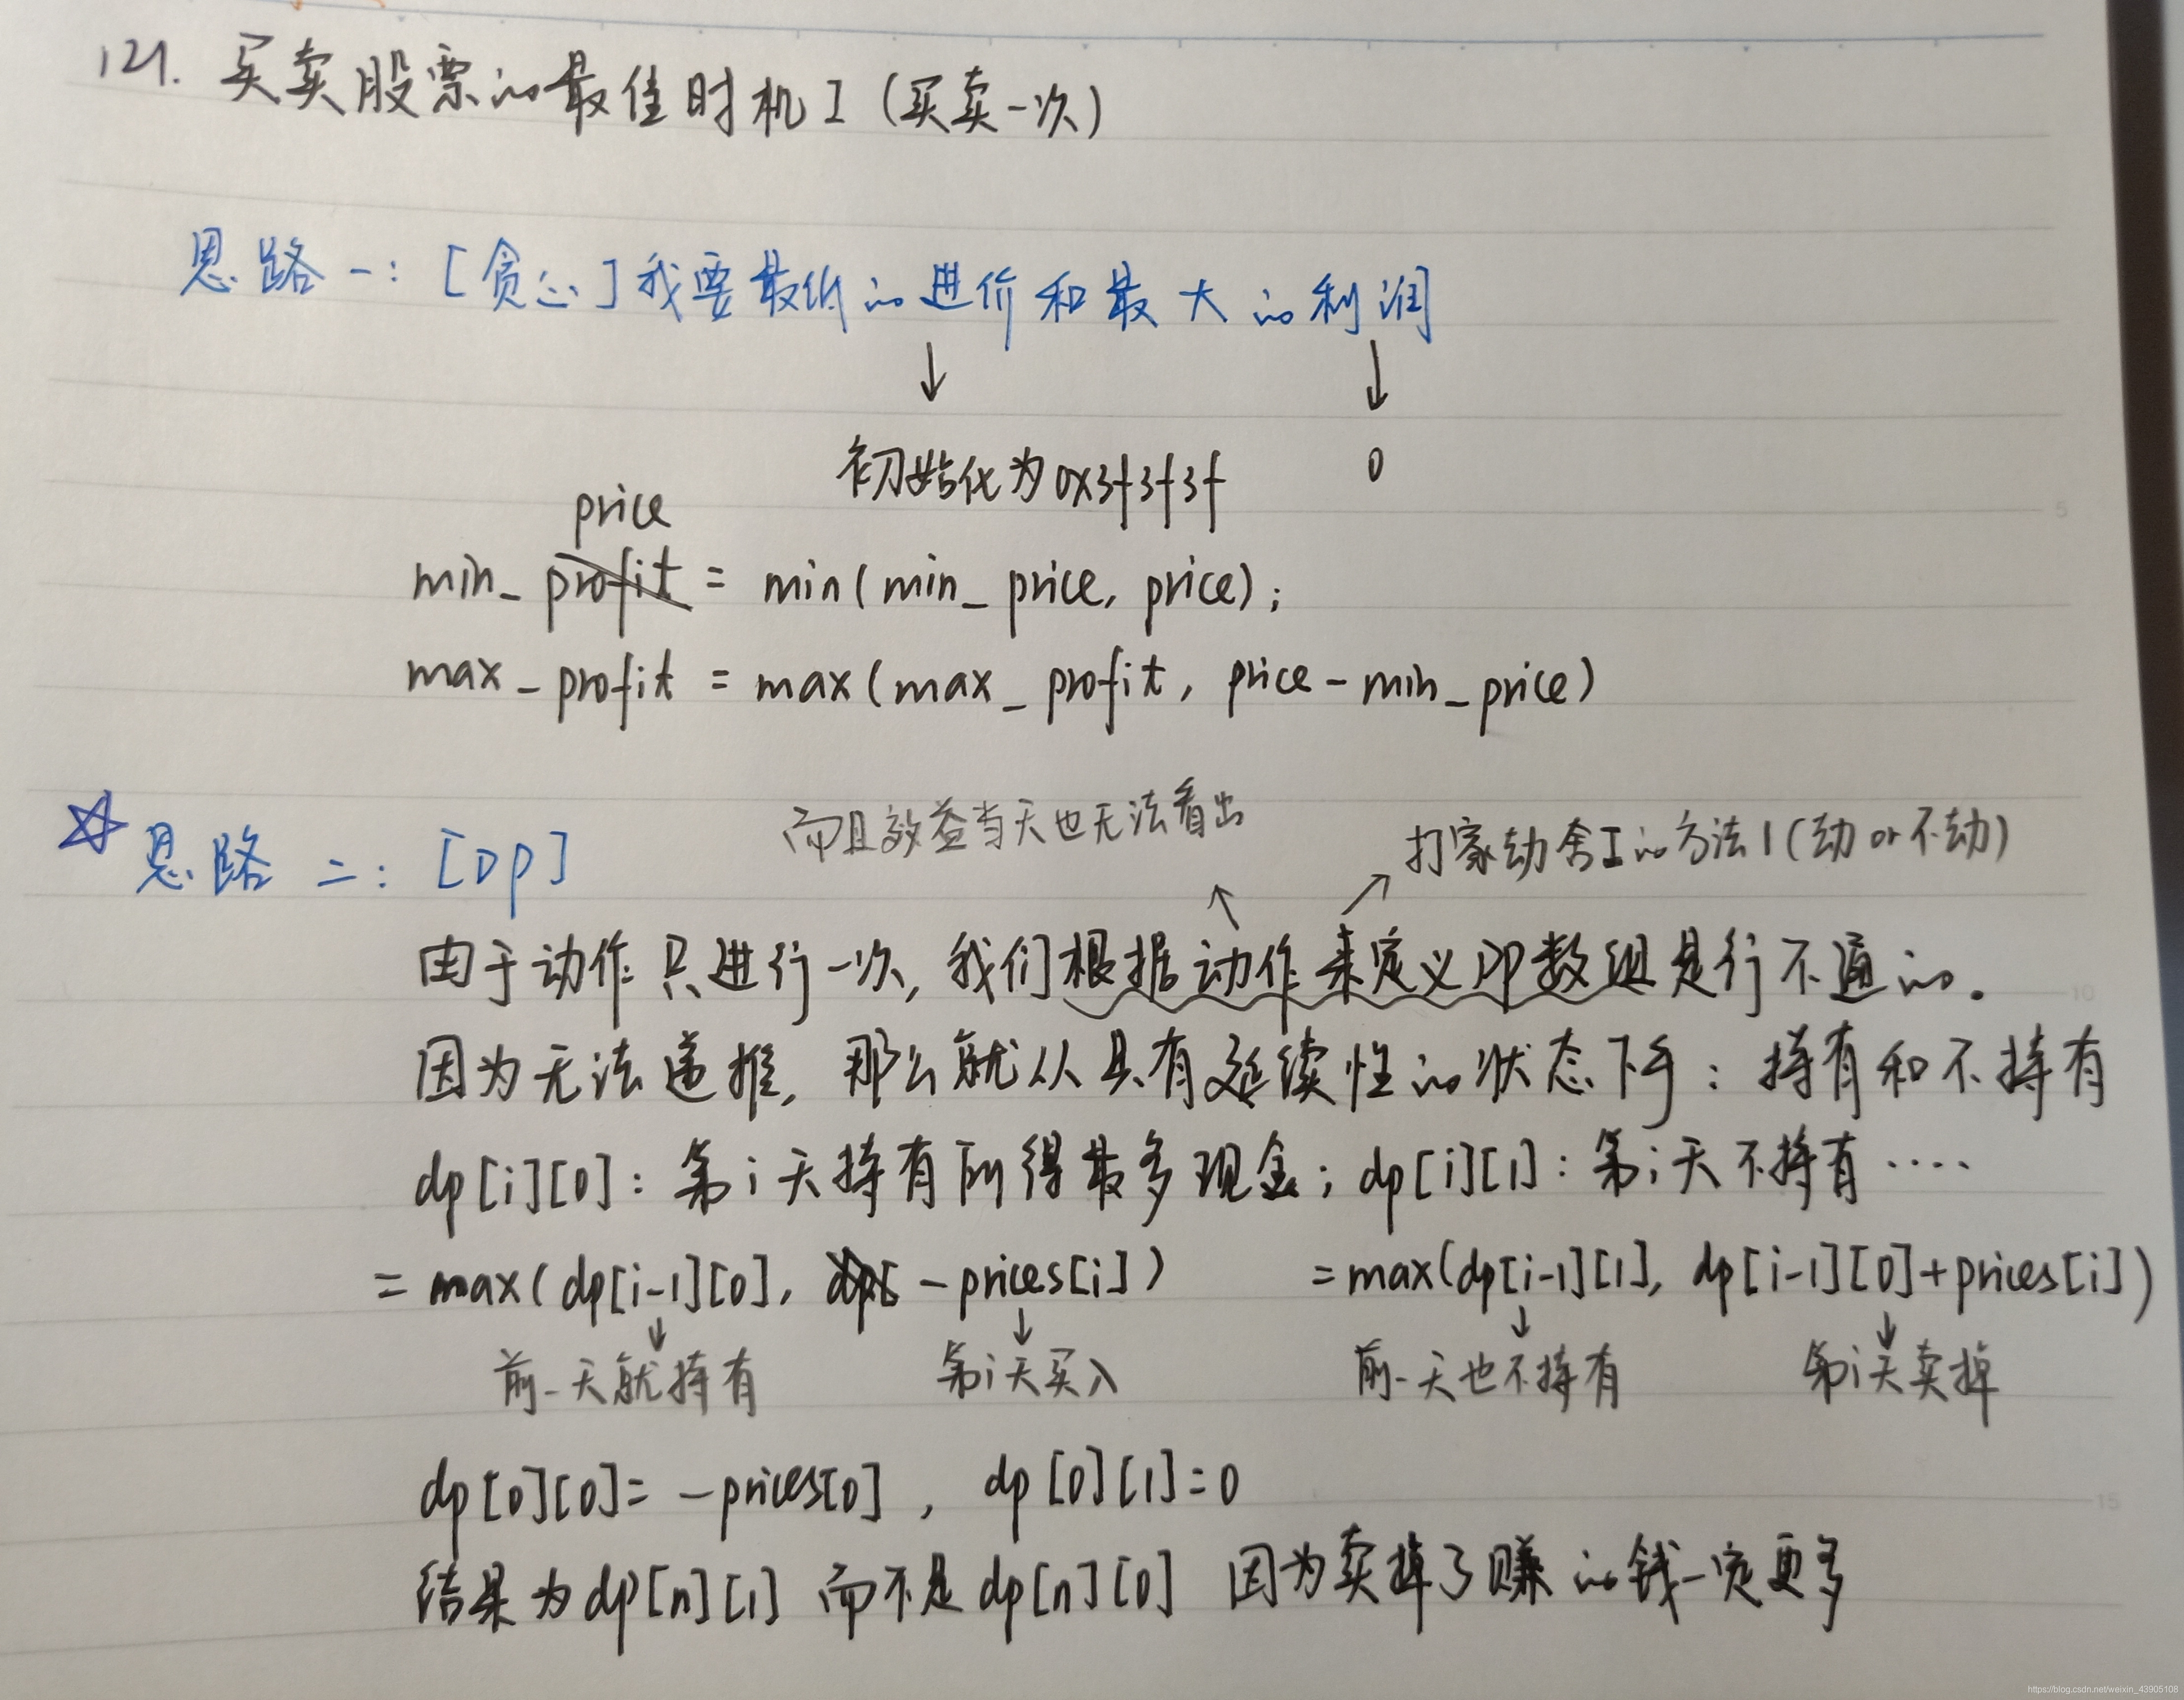 121. 买卖股票的最佳时机 I (买卖一次)
思路一: [贪心] 我要最低的进价和最大的利润
↓ ↓
初始化为0x3f3f3f 0
price
min_ profit = min(min_price, price);
max_profit = max(max_profit, price-min_price)
而且效益当天也无法看出
打家劫舍I的方法1(动 or 不动)
☆ 思路二: [DP]
↑ ↗
由于动作只进行一次, 我们根据动作来定义DP数组是行不通的.
因为无法递推, 那么就从具有延续性的状态下手: 持有和不持有
dp[i][0]: 第i天持有所得最多现金; dp[i][1]: 第i天不持有....
= max(dp[i-1][0], -prices[i]) =max(dp[i-1][1], dp[i-1][0]+prices[i])
↓ ↓ ↓ ↓
前一天就持有 第i天买入 前一天也不持有 第i天卖掉
dp[0][0]= -prices[0] , dp[0][1]=0
结果为dp[n][1] 而不是dp[n][0] 因为卖掉了赚的钱一定更多
5
10
15
https://blog.csdn.net/weixin_43905108